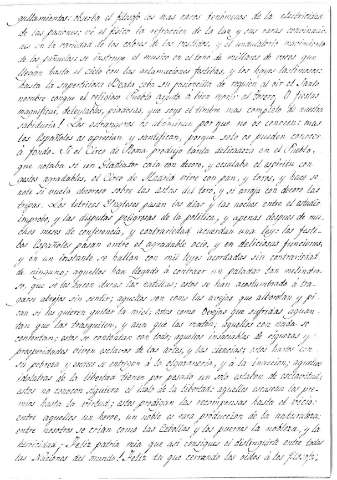 gullamientos: observa el filosofo los mas raros fenómenos de la electricidad
de las pasiones; ve el fisico la refraccion de la luz y sus raras
en la variedad de los colores de los vestidos, y el movimiento
de los pañuelos se instruye el musico en el tono de millares de voces que
llevan hasta el cielo con las aclamaciones festivas, y los hayes lastimosos:
hasta la supersticiosa Beata
nombre conque el religioso Pueblo ayuda á bien morir al torero. O fiestas
magnificas, deleytables, piadosas, que soys el timbre mas completo de nuestra
sabiduria! Los estrangeros os abominan por que no os conocen; mas
los Españoles os aprecian y santifican, porque solo os pueden conocer
á fondo. Si el Circo de Roma produjo tanta delicadeza en el Pueblo,
que notaba si un Gladiator caía con decoro, y exalaba el espiritu con
gestos agradables, el Circo de Madrid vive con pan, y toros, y hace se
note si vuela decoroso sobre las astas del toro, y si arroja con decoro las
tripas. Los tetricos Ingleses pasan los dias y las noches entre el estudio
improbo, y las disputas peligrosas de la politica, y apenas despues de mu-
chos meses de conferencia, y contrariedad acuerdan una ley: los festi-
dos Españoles pasan entre el agradable ocio, y en deliciosas funciones,
y en un instante se hallan con mil leyes acordadas sin contrariedad
de ninguno; aquellos han llegado á contraer un paladar tan melindro-
so, que se les hacen duras las natillas; estos se han acostumbrado á tra-
garse abrojos sin sentir; aquellos son como las avejas que alborotan y pi-
can si les quieren quitar la miel; estos como ovejas que sufridas aguan-
tan que las trasquilen, y aun que las maten; aquellos con nada se
contentan; estos se contentan con todo; aquellos insaciables de riquezas y
prosperidades viven esclavos de las artes, y las ciencias; estos harto con
su pobreza y ocio se entregan á la y á la inaccion; aquellos
idolatras de la libertad tienen por pesado un solo eslabon de esclavitud;
estos no conocen siquiera el de la libertad; aquellos escasean los pre-
mios hasta la virtud; estos prodigan las recompensas hasta el vicio:
entre aquellos un heroe, un noble es rara produccion de la naturaleza;
entre nosotros se crian como las cebollas y los puerros la nobleza, y la
heroicidad; Feliz patria mia que así consigues el distinguirte entre todas
las Naciones del mundo! Feliz tu que cerrando los oídos á los filosofi-